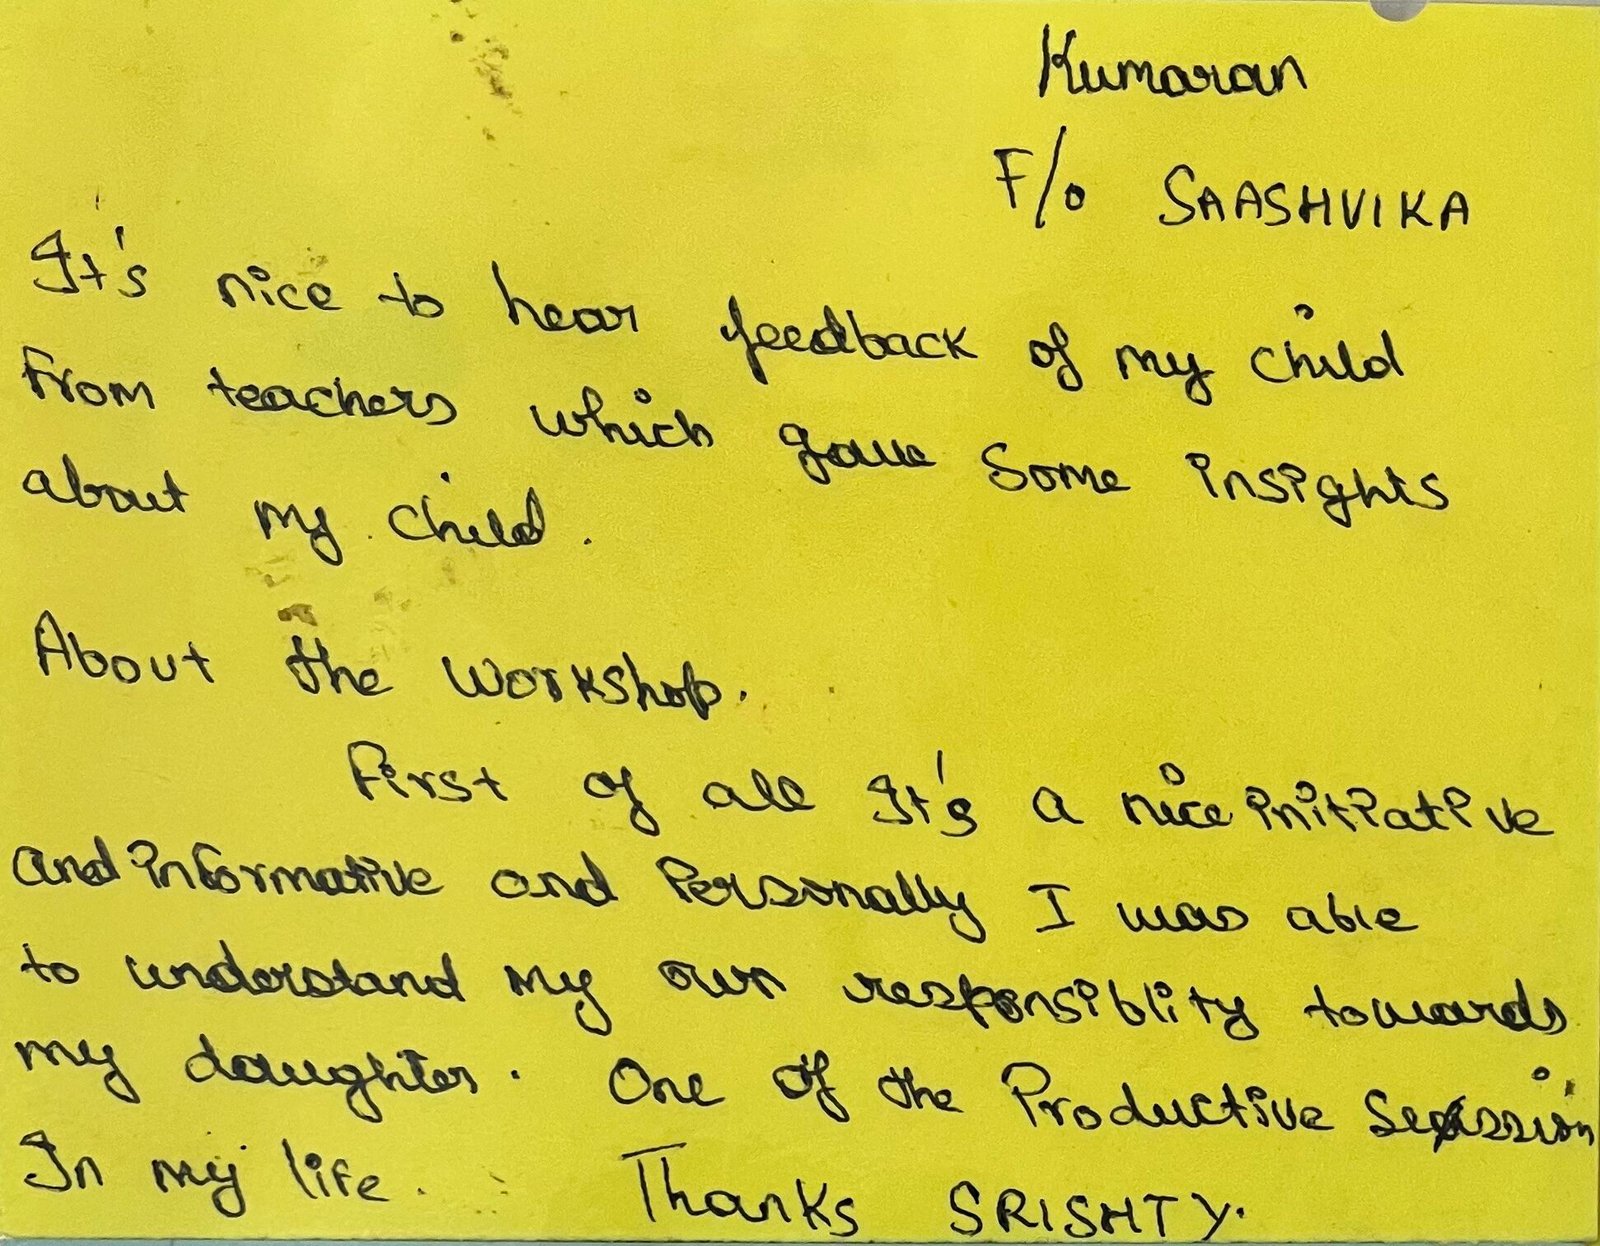 Kumaran
F/o SAASHVIKA
It's nice to hear feedback of my child
from teachers which gave some insights
about my child.
About the workshop.
First of all It's a nice initiative
and informative and Personally I was able
to understand my own responsiblity towards
my daughter. One of the Productive Session
In my life. Thanks SRISHTY.